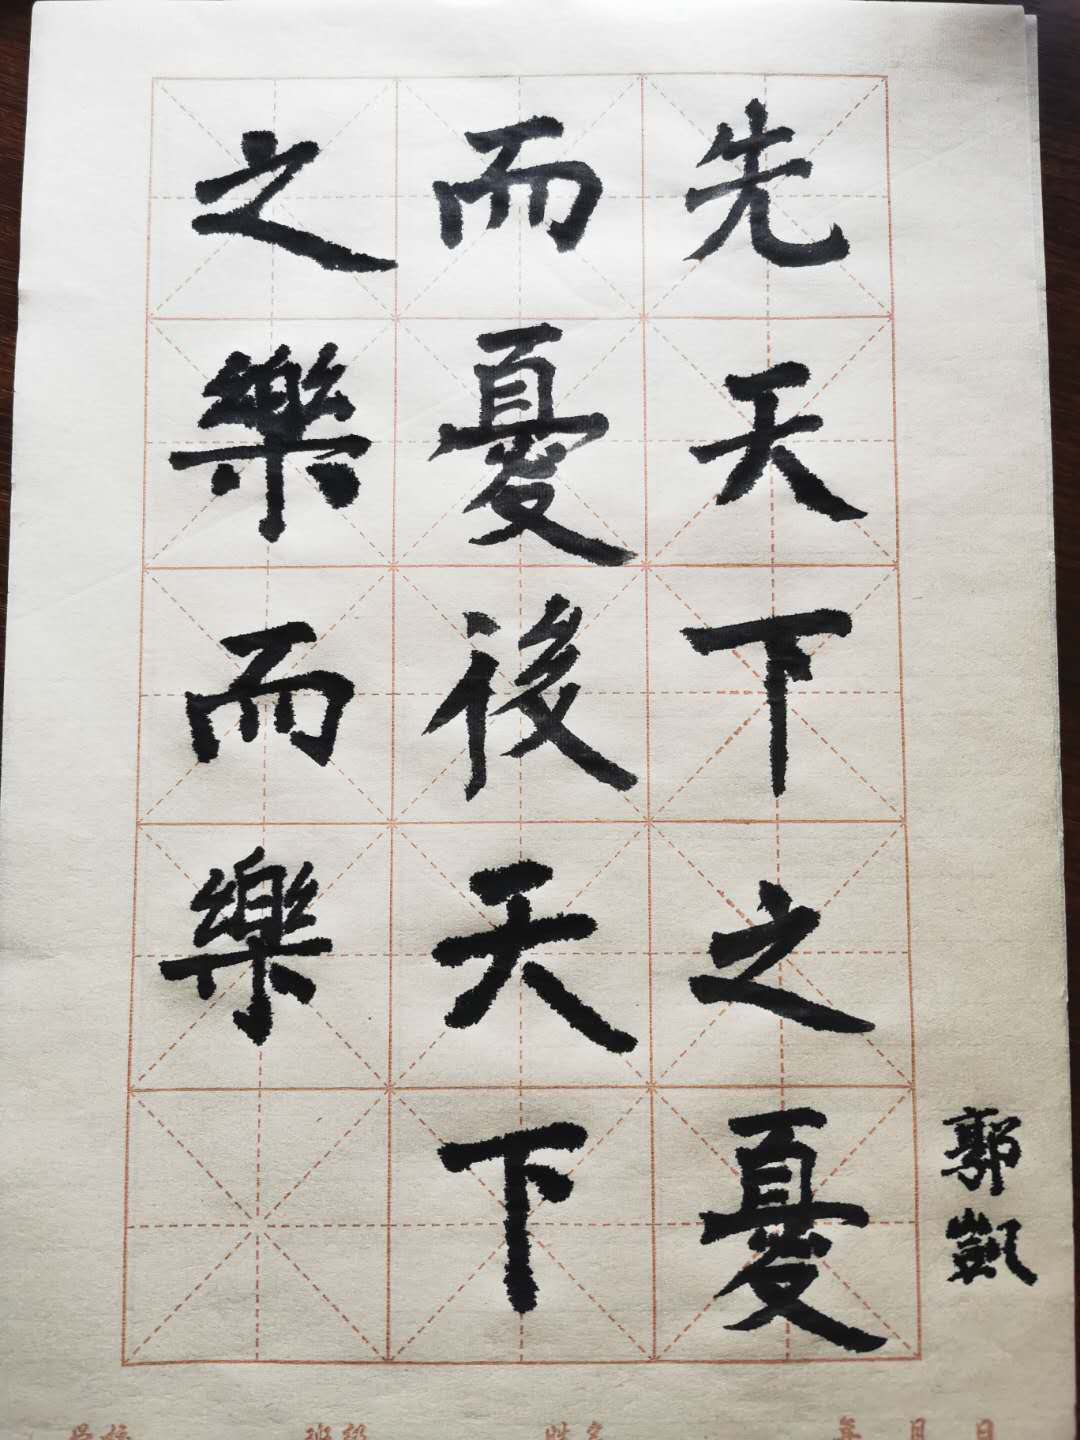 先天下之憂
而憂後天下
之樂而樂
郭凱
班級
姓名
年 月 日